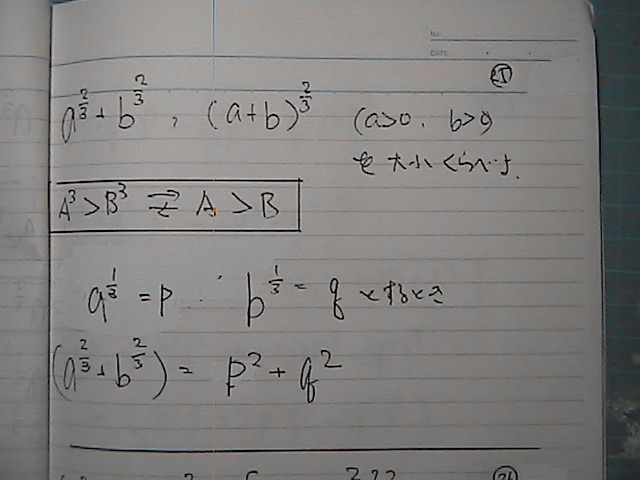 NO.
DATE
㉕
a^{2/3} + b^{2/3} , (a+b)^{2/3} (a>0, b>0)
を大小くらべよ.
A³>B³ ⇄ A>B
a^{1/3} = p … b^{1/3} = q とするとき
(a^{2/3} + b^{2/3}) = p² + q²